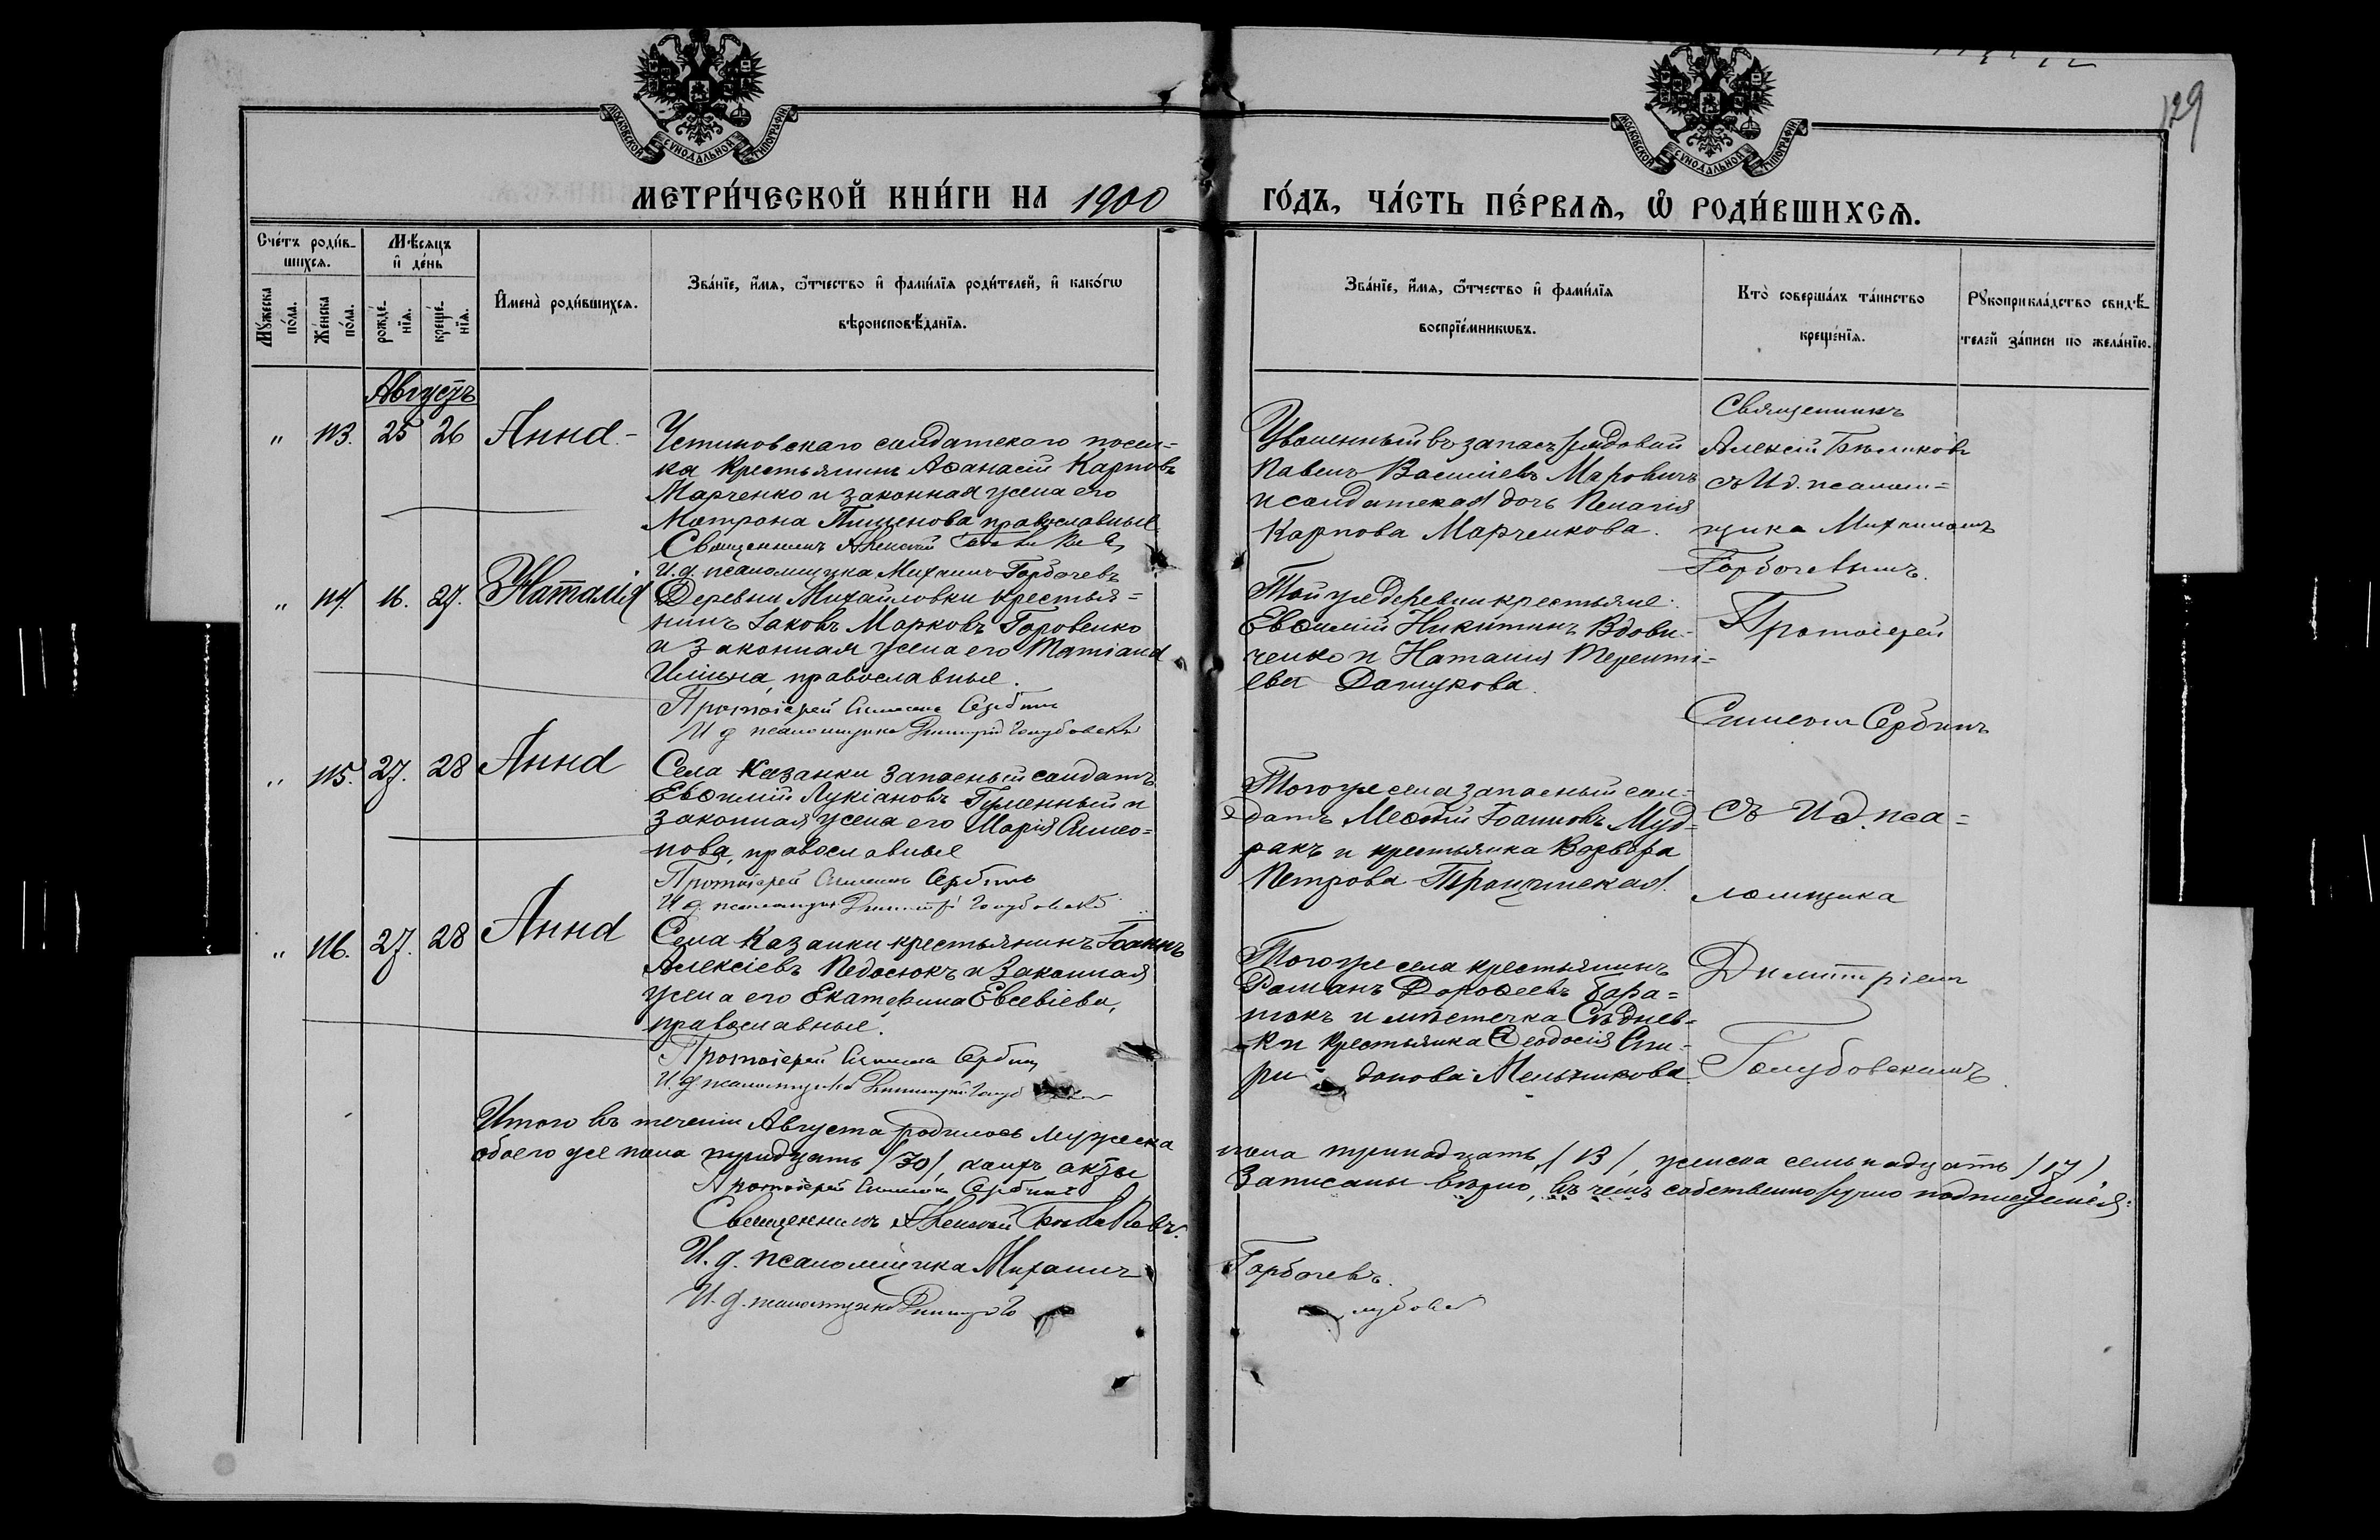 129
МОСКОВСКОЙ СѴНОДАЛЬНОЙ ТИПОГРАФІИ
МОСКОВСКОЙ СѴНОДАЛЬНОЙ ТИПОГРАФІИ
МЕТРИ́ЧЕСКОЙ КНИ́ГИ НА 1900
ГО́ДЪ, ЧА́СТЬ ПЕ́РВАѦ, Ѽ РОДИ́ВШИХСѦ.
Сче́тъ роди́в-
шихсѧ.
Мѣ́сѧцъ
и҆ де́нь
Мꙋ́жеска
по́ла.
Же́нска
по́ла.
рожде́-
нїѧ.
креще́-
нїѧ.
И҆мена̀ роди́вшихсѧ.
Зва́нїе, и҆́мѧ, ѻ҆́тчество и҆ фами́лїѧ роди́телей, и҆ како́гѡ
вѣроисповѣ́данїѧ.
Зва́нїе, и҆́мѧ, ѻ҆́тчество и҆ фами́лїѧ
воспрїе́мникѡвъ.
Кто̀ соверша́лъ та́инство
креще́нїѧ.
Рꙋкоприкла́дство свидѣ́-
телей за́писи по жела́нїю.
Августъ
" 113. 25 26 Анна.-
Устиновскаго солдатскаго посел=
ка крестьянинъ Аѳанасій Карповъ
Марченко и законная жена его
Матрона Пименова православные
Священникъ Алексій Бѣликовъ
И. д. псаломщика Михаилъ Горбачевъ
Уволенный въ запасъ рядовой
Павелъ Василіевъ Маровичъ
и солдатская дочь Пелагія
Карпова Марченкова.
Священникъ
Алексій Бѣликовъ
съ И.д. псалом=
щика Михаиломъ
Горбачевымъ.
" 114. 16. 27. Наталія
Деревни Михайловки крестья=
нинъ Іаковъ Марковъ Горовенко
и законная жена его Татіана
Ильина, православные.
Протоіерей Симеонъ Сербинъ
И д псаломщика Димитрій Голубовскій
Той же деревни крестьяне:
Евѳимій Никитинъ Вдови-
ченко и Наталія Теренті=
ева Дацукова.
Протоіерей
Симеонъ Сербинъ
" 115. 27. 28 Анна
Села Казанки запасный солдатъ
Евѳимій Лукіановъ Гуменный и
законная жена его Марія Симео=
нова, православные
Протоіерей Симеонъ Сербинъ
И д псаломщика Димитрій Голубовскій
Того же села запасный сол-
датъ Меѳодій Іоанновъ Муд-
ракъ и крестьянка Варвара
Петрова
съ И.д. пса=
ломщика
" 116. 27. 28 Анна
Села Казанки крестьянинъ Іоаннъ
Алексіевъ Педосюкъ и законная
жена его Екатерина Евсевіева,
православные.
Протоіерей Симеонъ Сербинъ
И. д псаломщика Димитрій Голуб
Того же села крестьянинъ
Романъ Дороѳеевъ
и мѣстечка
ки крестьянка Ѳеодосія Спи-
ри- донова Мельникова.
Димитріемъ
Голубовскимъ
Итого въ теченіи Августа родилось мужеска
пола тринадцать /13/, женска семьнадцать /17/
обоего же пола тридцать /30/, коихъ акты
записаны вѣрно, въ чемъ собственноручно подписуемся:
Протоіерей Симеонъ Сербинъ
Священникъ Алексій Бѣликовъ.
И. д. псаломщика Михаилъ Горбачевъ.
И. д. псаломщика Димитрій Голубовск